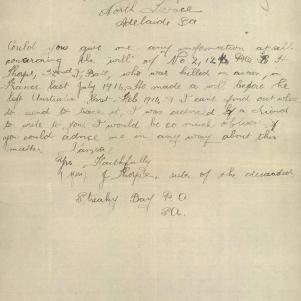 North Terrace
Adelaide SA
Could you give me any information at all
concerning the will of No 2,
Thorpe, 32nd Batt, who was killed in action, in
France last July 1916. He made a will before he
left Australia last Feb 1916, & I can't find out where
to send to trace it, I was advised by a friend
to write to you I would be so much obliged if
you could advise me in any way about this
matter
Yrs Faithfully
J Thorpe, sister of the deceased
Streaky Bay P.O
S.A.